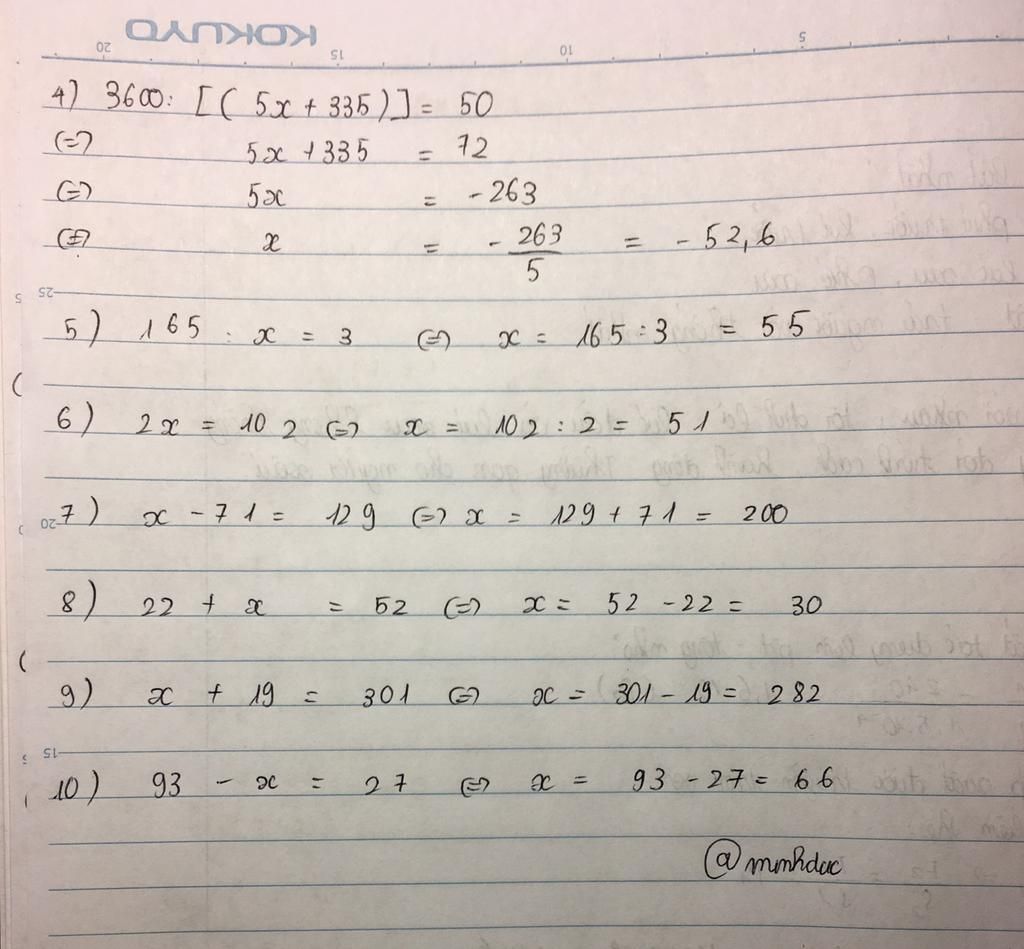 KOKUYO
20 15 10 5
4) 3600: [( 5x + 335 )] = 50
(=) 5x + 335 = 72
(=) 5x = - 263
(=) x = - 263/5 = - 52,6
25
5) 165 : x = 3 (=) x = 165 : 3 = 55
6) 2x = 102 (=) x = 102 : 2 = 51
20
7) x - 71 = 129 (=) x = 129 + 71 = 200
8) 22 + x = 52 (=) x = 52 - 22 = 30
9) x + 19 = 301 (=) x = 301 - 19 = 282
15
10) 93 - x = 27 (=) x = 93 - 27 = 66
@minhduc